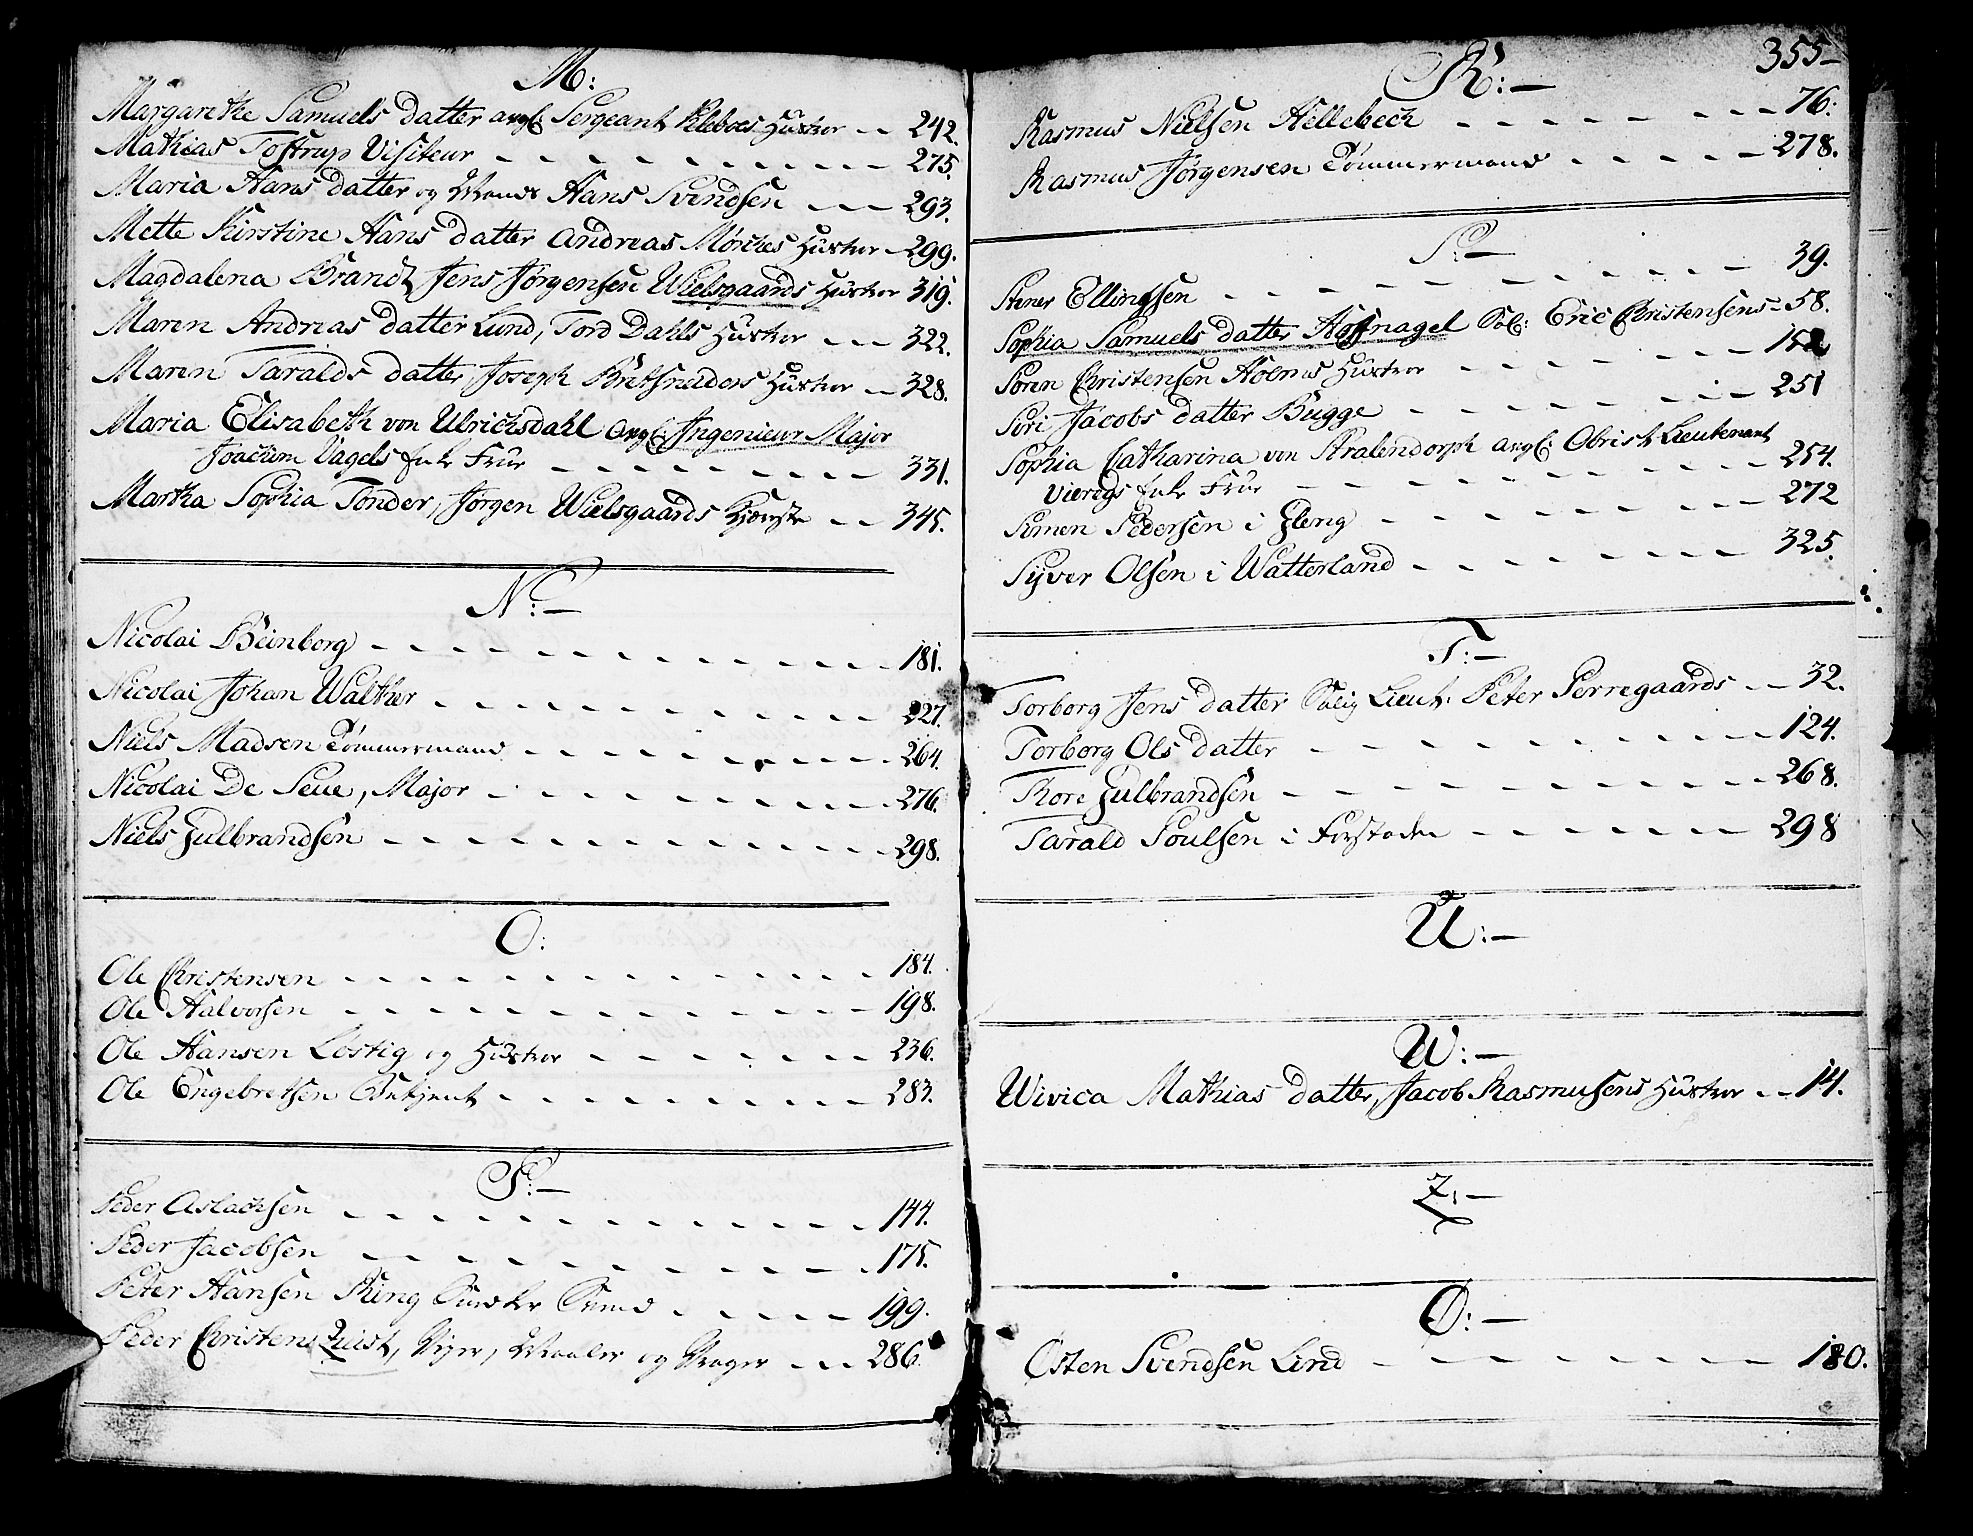 M:
Margarethe Samuels datter avgl: Sergeant Kleboes Hustroe 242.
Mathias Tostrup Visiteur 275.
Maria Hans datter og Mands Hans Svendsen 293.
Mette Kirstine Hans datter Andreas Mörkes Hustroe 299.
Magdalena Brandt Jens Jörgensen Wielsgaards Hustroe 319.
Maren Andreas datter Lund, Tord Dahls Hustroe 322.
Maren Taralds datter Joseph Bretsneiders Hustroe 328.
Maria Elisabeth von Ulrichsdahl avgl: Ingenieur Major
Joachum Vagels Enke Frue 331.
Martha Sophia Tonder, Jörgen Wielsgaards Kiæreste 345.
N:
Nicolai Beinborg 181.
Nicolai Johan Walther 227.
Niels Madsen Tömmermand 264.
Nicolai De Seue, Major 276.
Niels Gulbrandsen 298.
O:
Ole Christensen 184.
Ole Halvorsen 198.
Ole Hansen Lostig og Hustroe 236.
Ole Engebretsen Betjent 283.
P:
Peder Aslachsen 144.
Peder Jacobsen 175.
Peter Hansen Ring Smed 199.
Peder Christens Quist, Vejer, Maaler og Vrager 286.
355
R:
Rasmus Nielsen Hellebeck 76.
Rasmus Jörgensen Tömmermand 278.
S:
Stener Ellingsen 39.
Sophia Samuels datter Hoffnagel Sal: Eric Christensens 58.
Soren Christensen Holms Hustroe 152
Siri Jacobs datter Bugge 251
Sophia Catharina von Stralendorph avgl: Obrist Lieutenant
Vieregs Enke Frue 254.
Simen Pedersen i Gleng 272
Syver Olsen i Watterland 325.
T:
Torborg Jens datter Salig Lieut: Peter Sorregaards 32.
Torborg Ols datter 124.
Thore Gulbrandsen 268.
Tarald Poulsen i Forstaden 298
U:
W:
Wivica Mathias datter, Jacob Rasmusens Hustroe 14.
Z:
Ø:
Østen Svendsen Lind 180.